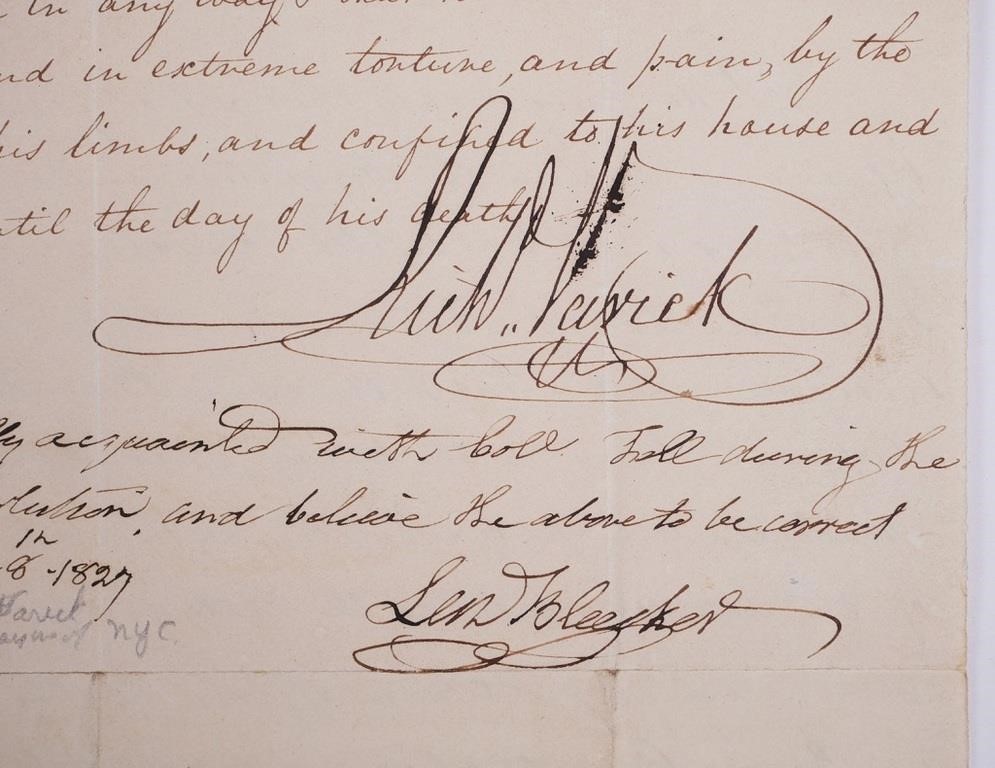 in any way,
nd in extreme torture, and pain, by the
his limbs, and confined to his house and
ntil the day of his death
Rich,, Varick
ly acquainted with Coll. Tell during the
olution, and believe the above to be correct
8 - 1827
Varick
NYC.
Leod Bleecker